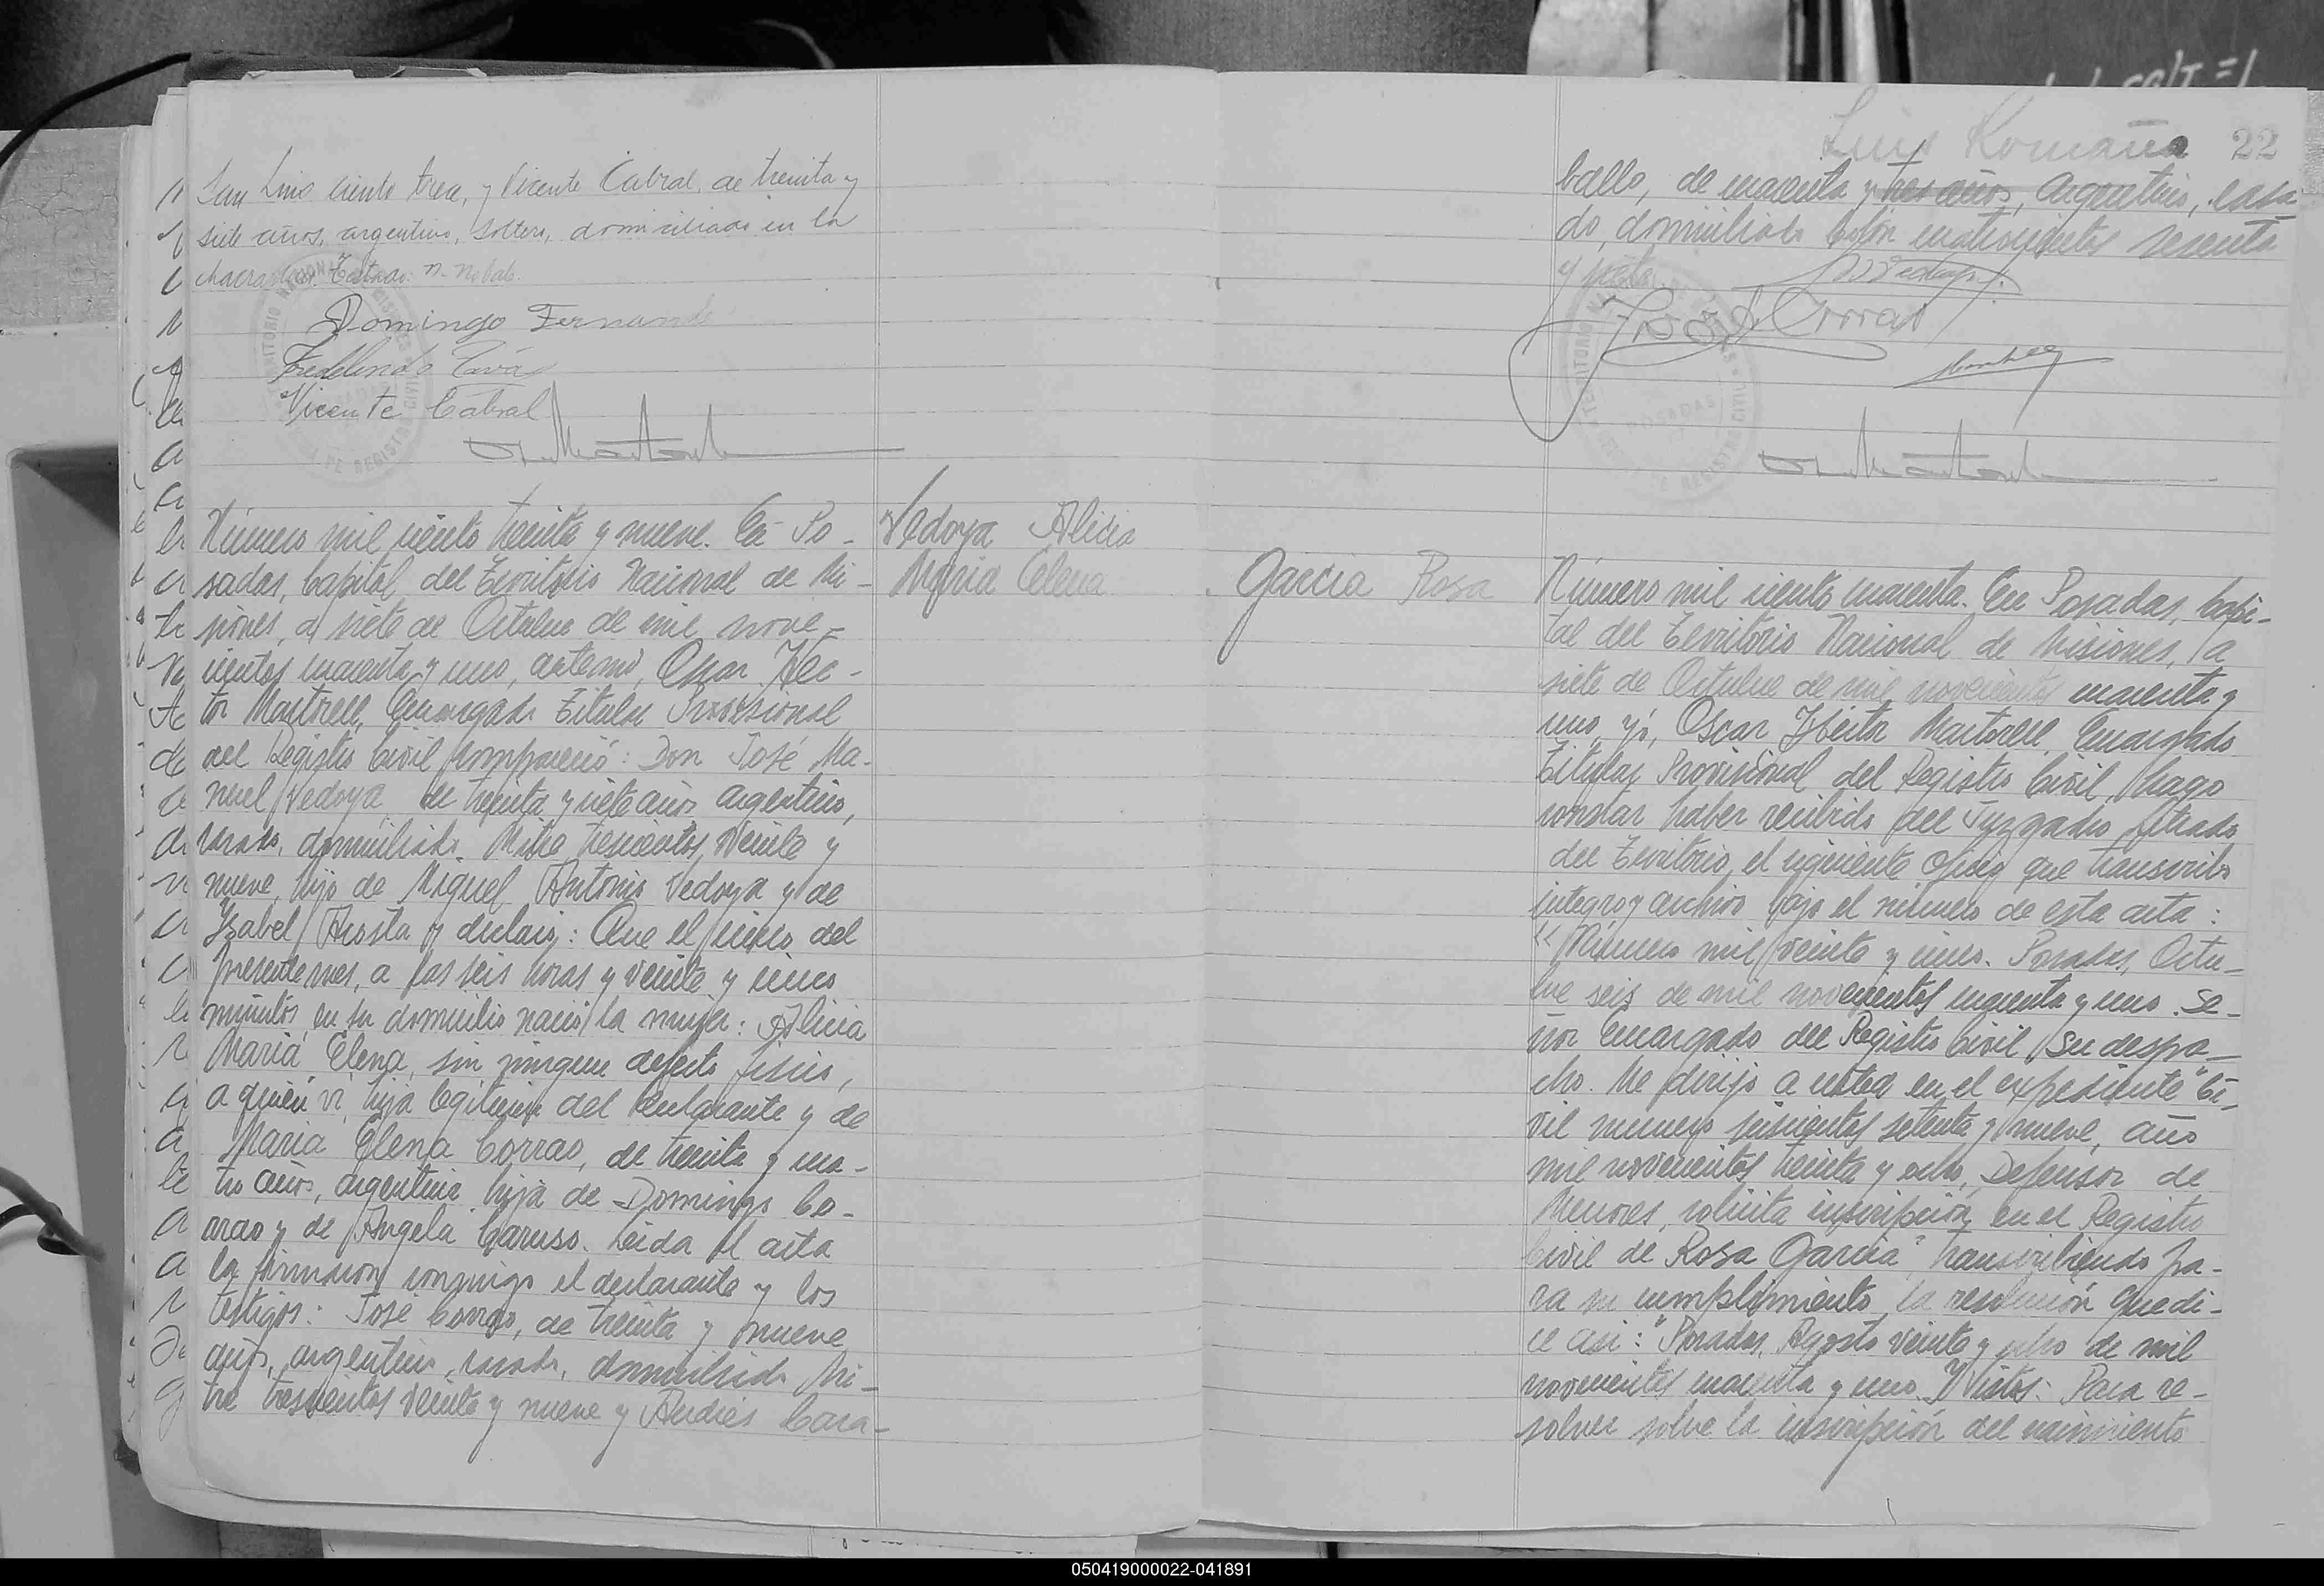 San Luis ciento trece, y Vicente Cabral, de treinta y
siete años, argentino, soltero, domiciliado en la
chacra Testado: n. no vale.
Domingo Fernand
Vicente Cabral
Número mil ciento treinta y nueve. En Po-
sadas, Capital del Territorio Nacional de Mi-
siones, a siete de Octubre de mil nove-
cientos cuarenta y uno, ante mi, Oscar Hec-
tor Martorell, Encargado Titular Provisional
del Registro Civil compareció: Don José Ma-
nuel Vedoya, de treinta y siete años, argentino,
casado, domiciliado Mitre trescientos veinte y
nueve, hijo de Miguel Antonio Vedoya y de
Ysabel Acosta y declaró: Que el cinco del
presente mes, a las seis horas y veinte y cinco
minutos, en su domicilio nació la mujer: Alicia
María Elena, sin ningun defecto fisico,
a quien vi, hija legitima del declarante y de
María Elena Corrao, de treinta y cua-
tro años, argentina hija de Domingo Co-
rrao y de Angela Caruso. Leida el acta
la firmaron conmigo el declarante y los
testigos: José Corrao, de treinta y nueve
años, argentino, casado, domiciliado Mi-
tre trescientos veinte y nueve y Andrés Cara-
Vedoya Alicia
María Elena
Luis Romaña 22
ballo, de cuarenta y tres años, argentino, casa-
do, domiciliado Colón cuatrocientos sesenta
y siete.
POSADAS
García Rosa
Número mil ciento cuarenta. En Posadas, Capi-
tal del Territorio Nacional de Misiones, a
siete de Octubre de mil novecientos cuarenta y
uno, yó, Oscar Héctor Martorell, Encargado
Titular Provisional del Registro Civil, hago
constar haber recibido del Juzgado Letrado
del Territorio, el siguiente oficio que transcribo
integro y archivo bajo el número de esta acta:
"Número mil veinte y cinco. Posadas, Octu-
bre seis de mil novecientos cuarenta y uno. Se-
ñor Encargado del Registro Civil, Su despa-
cho. Me dirijo a usted en el expediente "Ci-
vil número seiscientos setenta y nueve, año
mil novecientos treinta y ocho, Defensor de
Menores, solicita inscripción en el Registro
Civil de Rosa García", transcribiendo pa-
ra su cumplimiento la resolución que di-
ce asi: "Posadas, Agosto veinte y ocho de mil
novecientos cuarenta y uno. Y Vistos: Para re-
solver sobre la inscripción del nacimiento
050419000022-041891